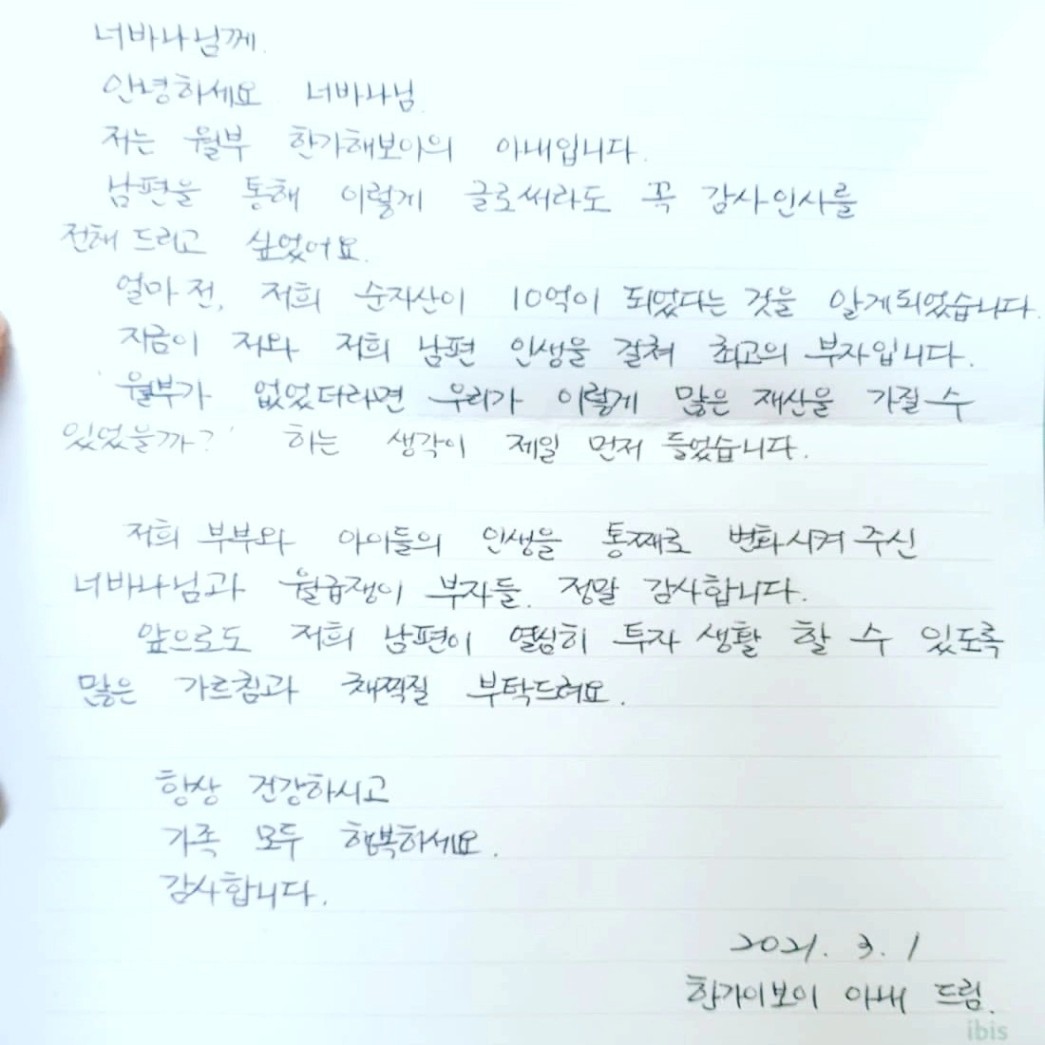 너바나님께.
안녕하세요 너바나님.
저는 월부 한가해보이의 아내입니다.
남편을 통해 이렇게 글로써라도 꼭 감사인사를
전해 드리고 싶었어요.
얼마 전, 저희 순자산이 10억이 되었다는 것을 알게되었습니다.
지금이 저와 저희 남편 인생을 걸쳐 최고의 부자입니다.
'월부가 없었더라면 우리가 이렇게 많은 재산을 가질 수
있었을까?' 하는 생각이 제일 먼저 들었습니다.
저희 부부와 아이들의 인생을 통째로 변화시켜 주신
너바나님과 월급쟁이 부자들. 정말 감사합니다.
앞으로도 저희 남편이 열심히 투자 생활 할 수 있도록
많은 가르침과 채찍질 부탁드려요.
항상 건강하시고
가족 모두 행복하세요.
감사합니다.
2021. 3. 1
한가이보이 아내 드림.
ibis